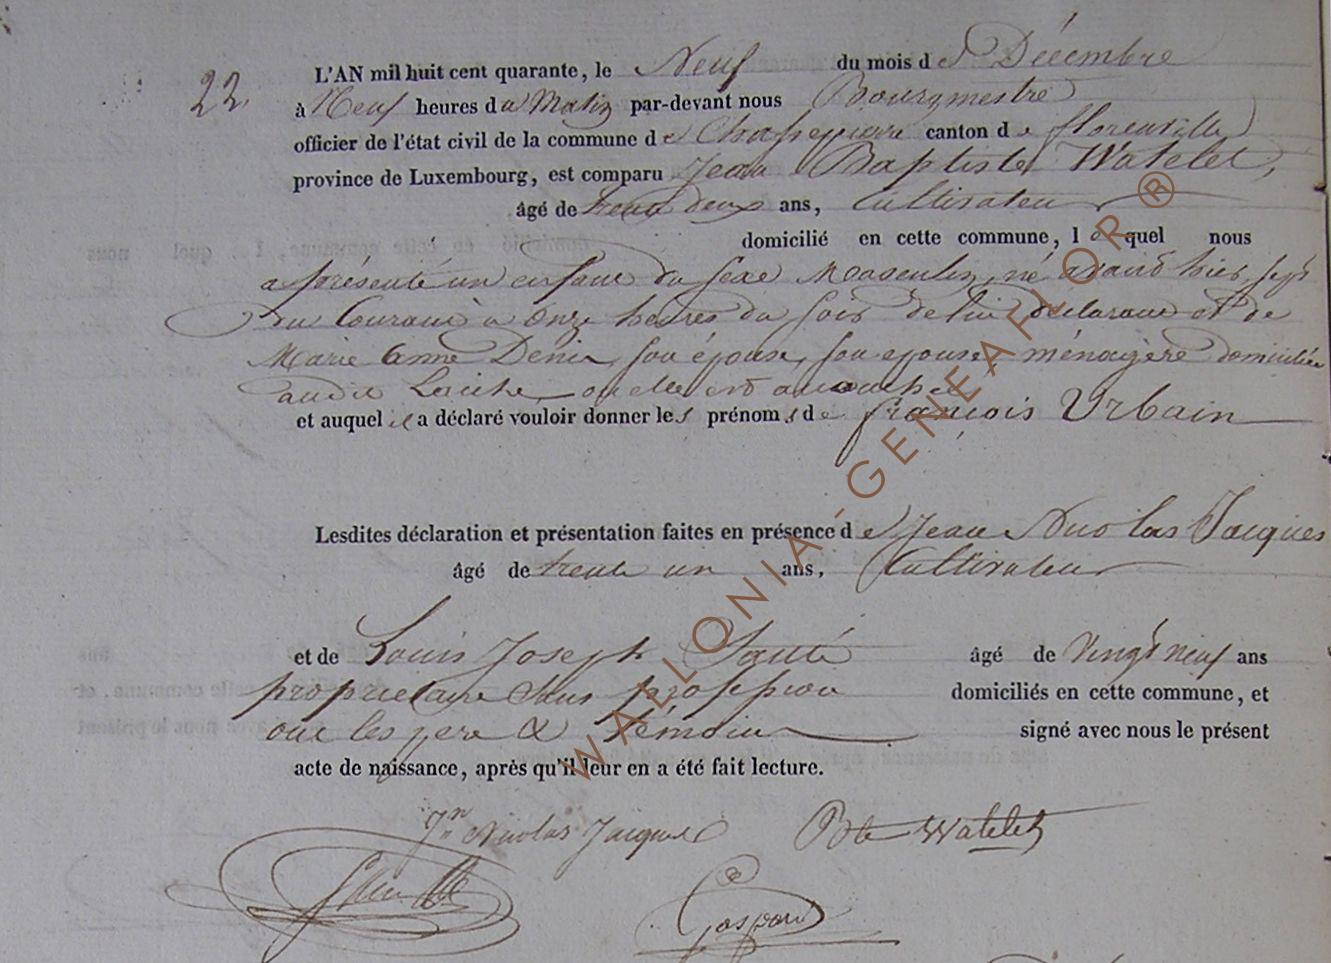 22.
L'AN mil huit cent quarante, le Neuf du mois de Décembre
à Neuf heures du Matin par-devant nous Bourgmestre
officier de l'état civil de la commune de Chassepierre canton de florenville
province de Luxembourg, est comparu Jean Baptiste Watelet,
âgé de trente deux ans, Cultivateur
domicilié en cette commune, lequel nous
a présenté un enfant du sexe Masculin, né avant hier, sept
du Courant à Onze heures du soir de lui déclarant et de
Marie Anne Denis, son épouse, son epouse, ménagère domiciliée
audit Laiche, ou elle est accouchée
et auquel il a déclaré vouloir donner les prénoms de françois Urbain
Lesdites déclaration et présentation faites en présence de Jean Nicolas Jacques
âgé de trente un ans, Cultivateur
et de Louis Joseph âgé de Vingt neuf ans
propriétaire sans profession domiciliés en cette commune, et
ont les père & témoins signé avec nous le présent
acte de naissance, après qu'il leur en a été fait lecture.
Jn Nicolas Jacques Bte Watelet
Gaspard
WALLONIA-GENEAFLOR ®